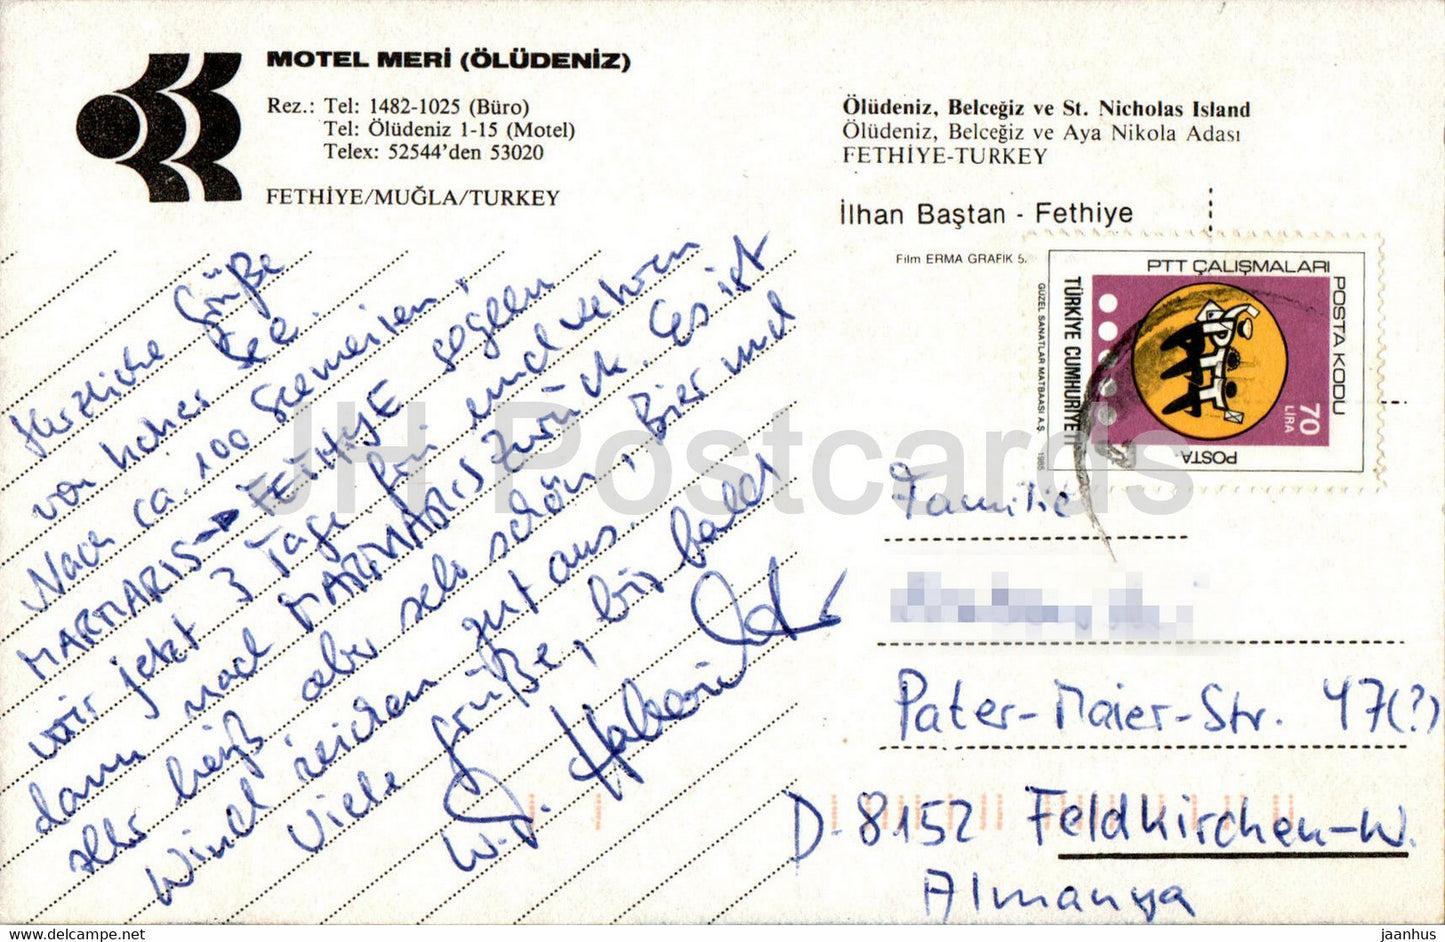 MOTEL MERİ (ÖLÜDENİZ)
Rez.: Tel: 1482-1025 (Büro)
Tel: Ölüdeniz 1-15 (Motel)
Telex: 52544'den 53020
FETHİYE/MUĞLA/TURKEY
Ölüdeniz, Belceğiz ve St. Nicholas Island
Ölüdeniz, Belceğiz ve Aya Nikola Adası
FETHİYE-TURKEY
İlhan Baştan - Fethiye
Film ERMA GRAFİK 5.
PTT ÇALIŞMALARI
POSTA KODU
TÜRKİYE CUMHURİYETİ
GÜZEL SANATLAR MATBAASI A.Ş. 1985
PTT
70
LİRA
POSTA
Herzliche Grüße
von hoher See.
Nach ca. 100 Seemeilen,
MARMARIS → FETHIYE segeln
wir jetzt 3 Tage hin und
dann nach MARMARIS zurück. Es ist
sehr heiß aber sehr schön, Bier und
Wind reichen gut aus.
Viele Grüße, bis bald
Familie
Pater-Maier-Str. 47(?)
D-8152 Feldkirchen-W.
Almanya
JH Postcards
www.delcampe.net
jaanhus